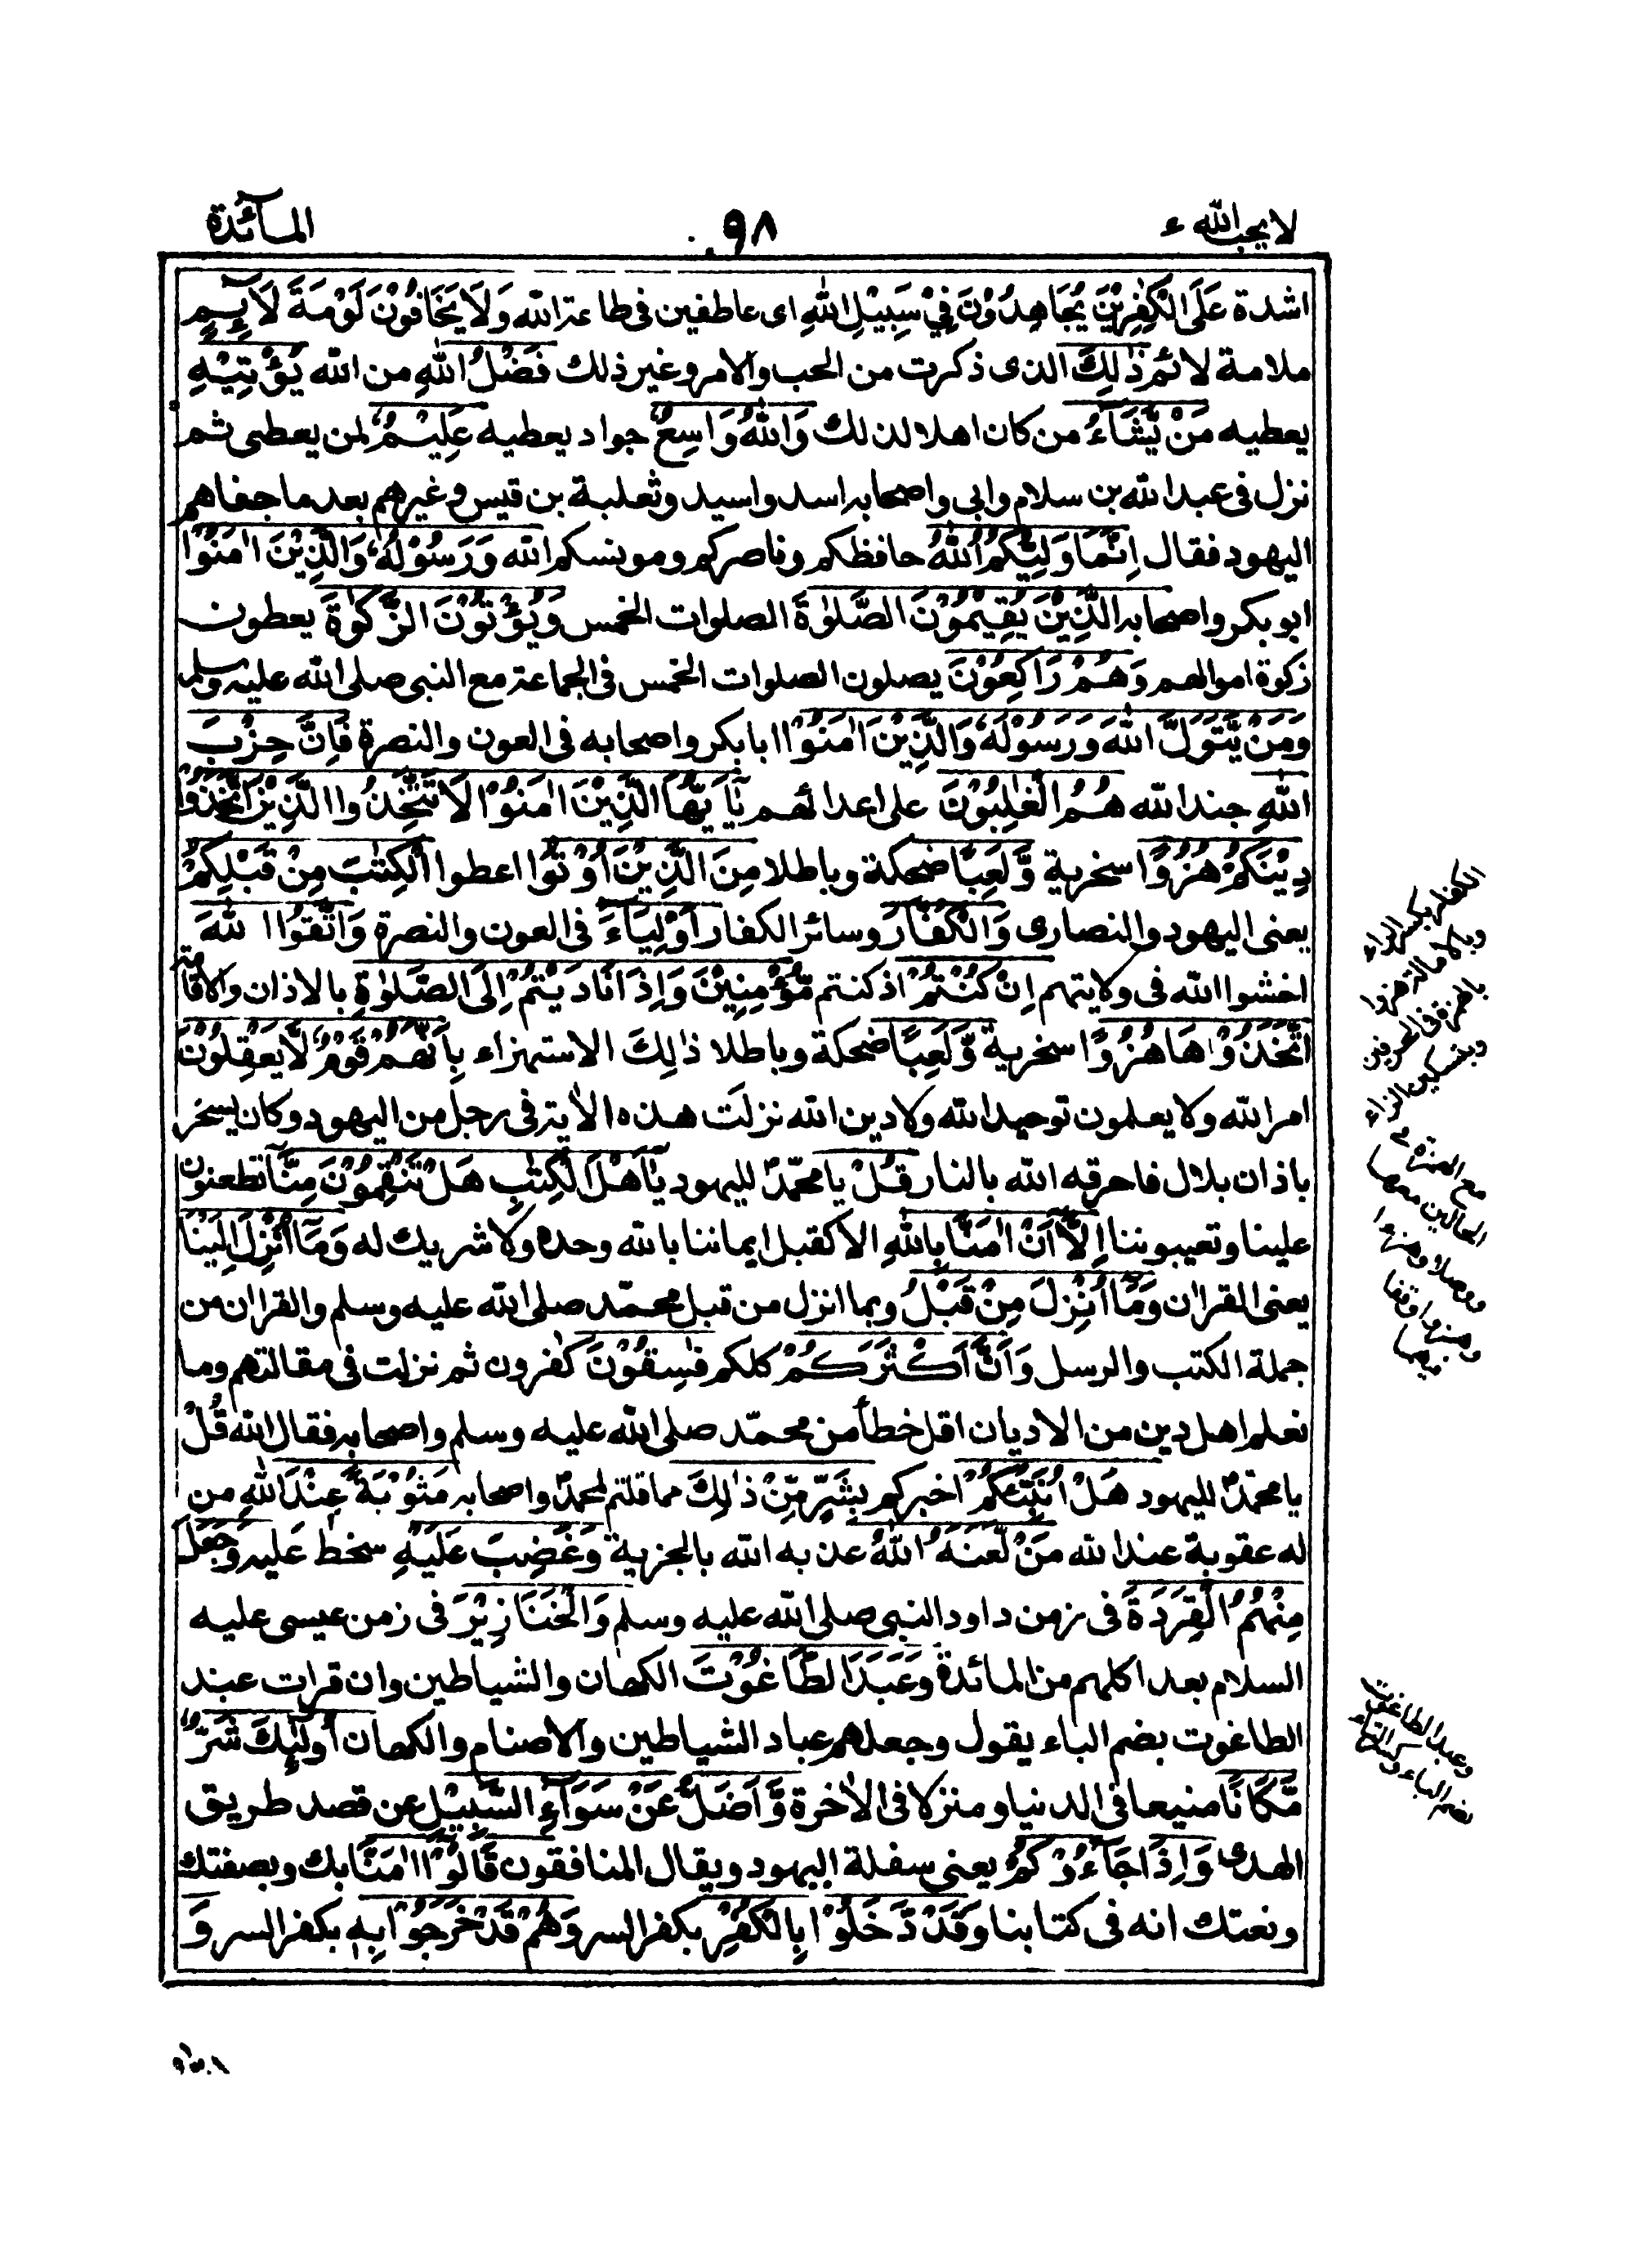 لا يحب الله ٤
٩٨
المآئدة
اشدة عَلَى الْكٰفِرِيْنَ يُجَاهِدُوْنَ فِيْ سَبِيْلِ اللّٰهِ اى عاطفين فى طاعة الله وَلَا يَخَافُوْنَ لَوْمَةَ لَآئِمٍ
ملامة لائم ذٰلِكَ الذى ذكرت من الحب والامر وغير ذلك فَضْلُ اللّٰهِ من الله يُؤْتِيْهِ
يعطيه مَنْ يَّشَآءُ من كان اهلا لذلك وَاللّٰهُ وَاسِعٌ جواد يعطيه عَلِيْمٌ لمن يعطى ثم
نزل فى عبد الله بن سلام وابى واصحابه اسد واسيد وثعلبة بن قيس وغيرهم بعد ما جفاهم
اليهود فقال اِنَّمَا وَلِيُّكُمُ اللّٰهُ حافظكم وناصركم ومونسكم الله وَرَسُوْلُهٗ وَالَّذِيْنَ اٰمَنُوْا
ابو بكر واصحابه الَّذِيْنَ يُقِيْمُوْنَ الصَّلٰوةَ الصلوات الخمس وَيُؤْتُوْنَ الزَّكٰوةَ يعطون
زكوة اموالهم وَهُمْ رَاكِعُوْنَ يصلون الصلوات الخمس فى الجماعة مع النبى صلى الله عليه وسلم
وَمَنْ يَّتَوَلَّ اللّٰهَ وَرَسُوْلَهٗ وَالَّذِيْنَ اٰمَنُوْا ابا بكر واصحابه فى العون والنصرة فَاِنَّ حِزْبَ
اللّٰهِ جند الله هُمُ الْغٰلِبُوْنَ على اعدائهم يٰٓاَيُّهَا الَّذِيْنَ اٰمَنُوْا لَا تَتَّخِذُوا الَّذِيْنَ اتَّخَذُوْا
دِيْنَكُمْ هُزُوًا سخرية وَّلَعِبًا ضحكة وباطلا مِنَ الَّذِيْنَ اُوْتُوا اعطوا الْكِتٰبَ مِنْ قَبْلِكُمْ
يعنى اليهود والنصارى وَالْكُفَّارَ وسائر الكفار اَوْلِيَآءَ فى العون والنصرة وَاتَّقُوا اللّٰهَ
اخشوا الله فى ولايتهم اِنْ كُنْتُمْ اذ كنتم مُّؤْمِنِيْنَ وَاِذَا نَادَيْتُمْ اِلَى الصَّلٰوةِ بالاذان والاقامة
اتَّخَذُوْهَا هُزُوًا سخرية وَّلَعِبًا ضحكة وباطلا ذٰلِكَ الاستهزاء بِاَنَّهُمْ قَوْمٌ لَّا يَعْقِلُوْنَ
امر الله ولا يعلمون توحيد الله ولا دين الله نزلت هذه الاٰية فى رجل من اليهود وكان يسخر
باذان بلال فاحرقه الله بالنار قُلْ يا محمّدؐ لليهود يٰٓاَهْلَ الْكِتٰبِ هَلْ تَنْقِمُوْنَ مِنَّآ تطعنون
علينا وتعيبوننا اِلَّآ اَنْ اٰمَنَّا بِاللّٰهِ الا كقبل ايماننا بالله وحده ولا شريك له وَمَآ اُنْزِلَ اِلَيْنَا
يعنى القراٰن وَمَآ اُنْزِلَ مِنْ قَبْلُ وبما انزل من قبل محمّد صلى الله عليه وسلم والقراٰن من
جملة الكتب والرسل وَاَنَّ اَكْثَرَكُمْ كلكم فٰسِقُوْنَ كٰفرون ثم نزلت فى مقالتهم وما
نعلم اهل دين من الاديان اقل خطأ من محمّد صلى الله عليه وسلم واصحابه فقال الله قُلْ
يا محمّدؐ لليهود هَلْ اُنَبِّئُكُمْ اخبركم بِشَرٍّ مِّنْ ذٰلِكَ مما قلتم لمحمدؐ واصحابه مَثُوْبَةً عِنْدَ اللّٰهِ من
له عقوبة عند الله مَنْ لَّعَنَهُ اللّٰهُ عذبه الله بالجزية وَغَضِبَ عَلَيْهِ سخط عليه وَجَعَلَ
مِنْهُمُ الْقِرَدَةَ فى زمن داود النبى صلى الله عليه وسلم وَالْخَنَازِيْرَ فى زمن عيسى عليه
السلام بعد اكلهم من المائدة وَعَبَدَ الطَّاغُوْتَ الكهان والشياطين وان قرات عبد
الطاغوت بضم الباء يقول وجعلهم عباد الشياطين والاصنام والكهان اُولٰٓئِكَ شَرٌّ
مَّكَانًا منيعا فى الدنيا ومنزلا فى الاٰخرة وَّاَضَلُّ عَنْ سَوَآءِ السَّبِيْلِ عن قصد طريق
الهدى وَاِذَا جَآءُوْكُمْ يعنى سفلة اليهود ويقال المنافقون قَالُوْٓا اٰمَنَّا بك وبصفتك
ونعتك انه فى كتابنا وَقَدْ دَّخَلُوْا بِالْكُفْرِ بكفر السر وَهُمْ قَدْ خَرَجُوْا بِهٖ بكفر السر وَ
وعبد الطاغوت
بضم الباء وكسر التاء